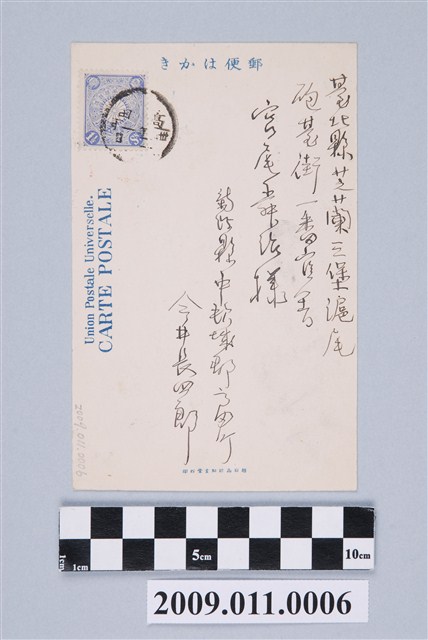 郵便はかき
臺北縣芝蘭三堡滬尾
砲臺街一番官舎
宮尾五郎治様
新潟縣中頸城郡高田町
今井長四郎
Union Postale Universelle.
CARTE POSTALE
2009.011.0006
1cm
1cm
5cm
10cm
2009.011.0006